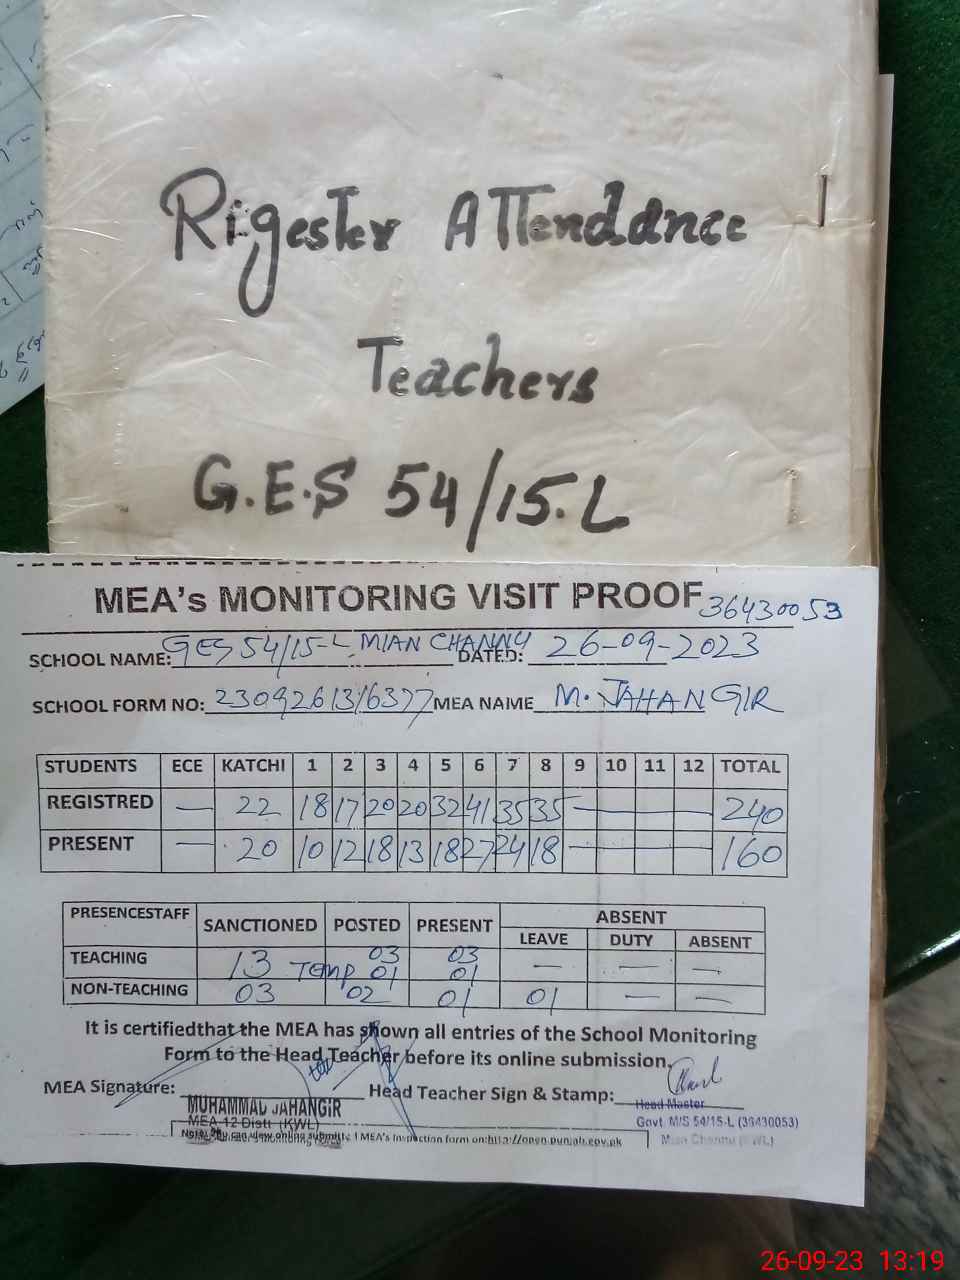 Rigester Attendance
Teachers
G.E.S 54/15.L
MEA's MONITORING VISIT PROOF 36430053
SCHOOL NAME: GES 54/15-L MIAN CHANNU DATED: 26-09-2023
SCHOOL FORM NO: 2309261316377 MEA NAME M. JAHANGIR
STUDENTS ECE KATCHI 1 2 3 4 5 6 7 8 9 10 11 12 TOTAL
REGISTRED — 22 18 17 20 20 32 41 35 35 — — — — 240
PRESENT — 20 10 12 18 13 18 27 24 18 — — — — 160
PRESENCESTAFF SANCTIONED POSTED PRESENT ABSENT
LEAVE DUTY ABSENT
TEACHING 13 03 03 — — —
Temp 01 01
NON-TEACHING 03 02 01 01 — —
It is certifiedthat the MEA has shown all entries of the School Monitoring
Form to the Head Teacher before its online submission.
MEA Signature: Head Teacher Sign & Stamp:
MUHAMMAD JAHANGIR
Head Master
MEA 12 Distt (KWL)
Govt. M/S 54/15-L (36430053)
Mian Channu (KWL)
Note: You can view online submitted MEA's Inspection form on: http://open.punjab.gov.pk
26-09-23 13:19